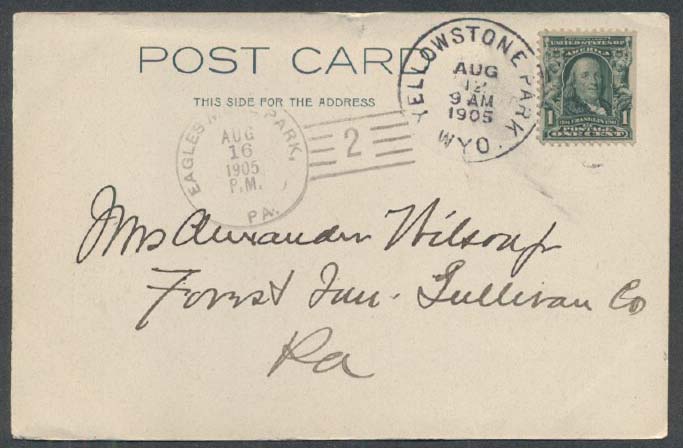 POST CARD
THIS SIDE FOR THE ADDRESS
YELLOWSTONE PARK
AUG
12
9 AM
1905
WYO.
UNITED STATES OF
AMERICA
1 1
POSTAGE
ONE CENT
EAGLES PARK,
AUG
16
1905
P.M.
PA.
2
Mrs Alexander Wilson Jr
Forest Inn. Sullivan Co
Pa